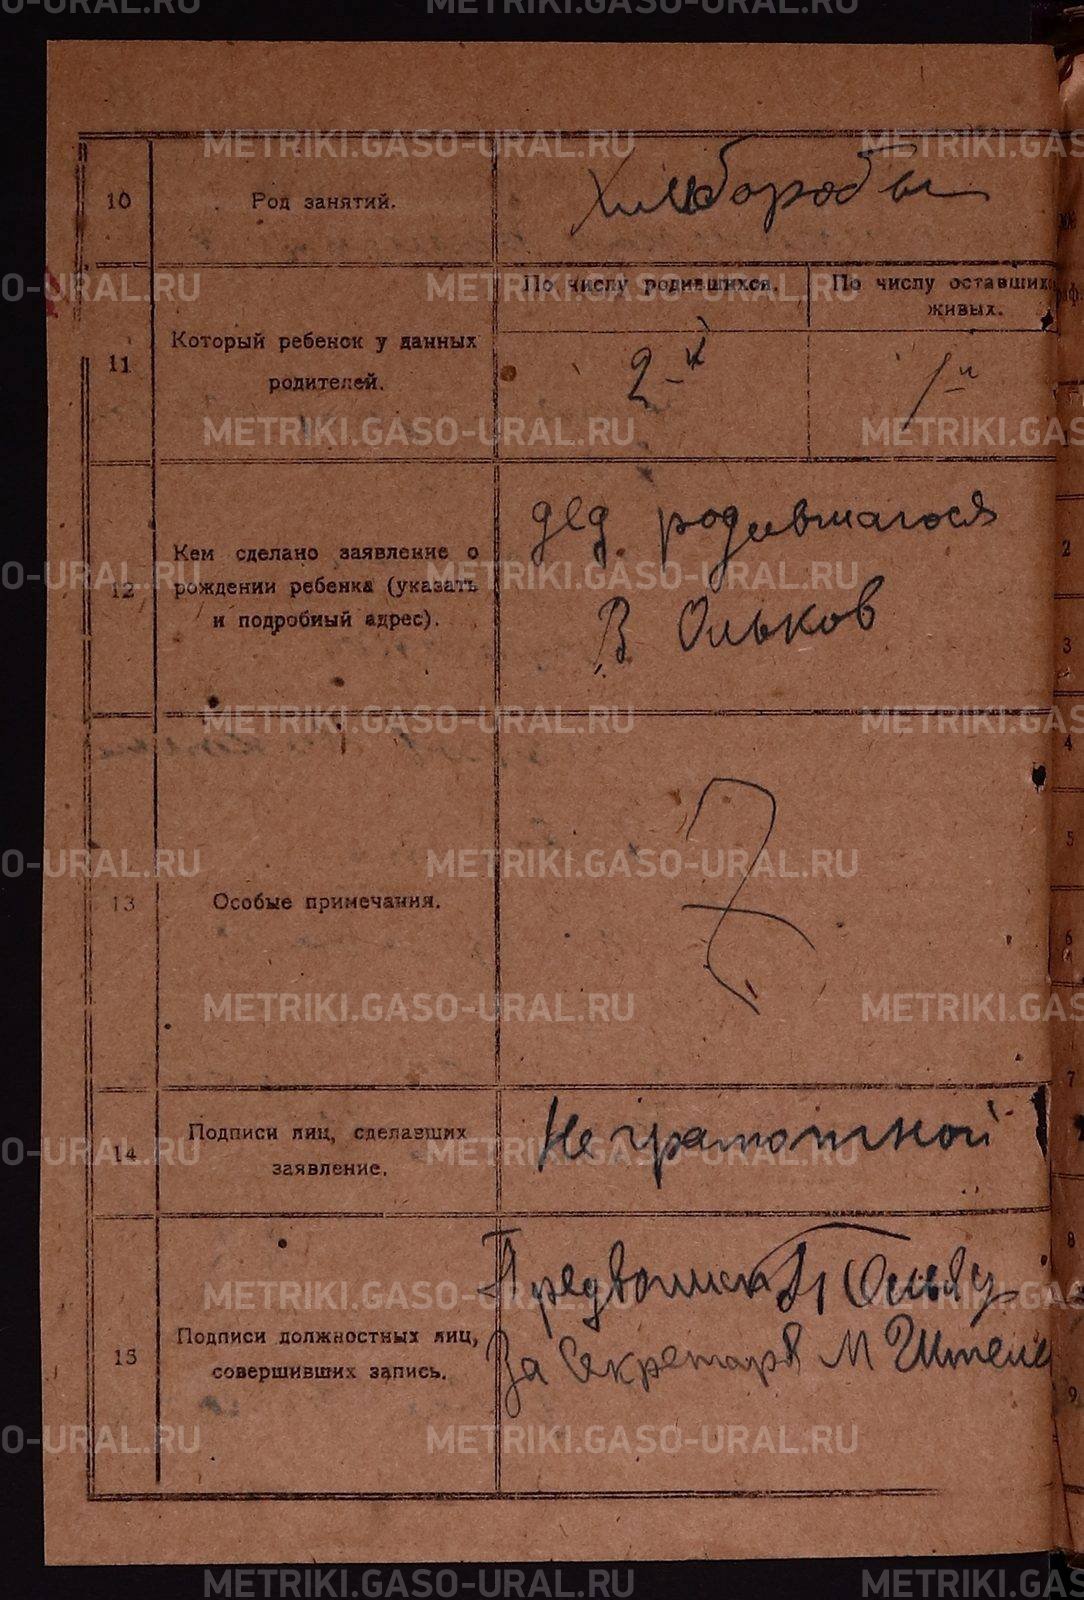 10
Род занятий.
Хлеборобы
11
Который ребенок у данных
родителей.
По числу родившихся.
По числу оставшихс
живых.
2-й
1-й
12
Кем сделано заявление о
рождении ребенка (указать
и подробный адрес).
дед родившагося
В Ольков
13
Особые примечания.
14
Подписи лиц, сделавших
заявление.
Не грамотной
15
Подписи должностных лиц,
совершивших запись.
За Секретаря М
2
3
4
5
6
7
8
9
METRIKI.GASO-URAL.RU